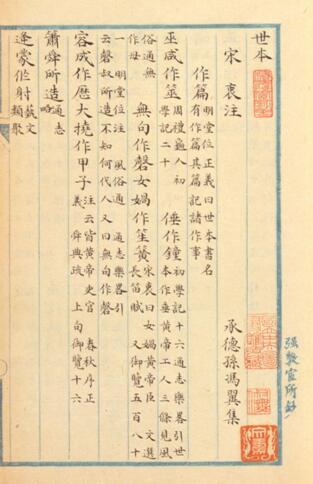 世本
宋衷注
承德孫馮翼集
作篇 明堂位正義曰世本書名
有作篇其篇記諸作事
巫咸作筮 周禮龜人 初
學記二十 倕作鐘 初學記十六通志樂畧引世
本作垂黃帝工人三條見風
俗通無
作母 無句作磬女媧作笙簧 宋衷曰女媧黃帝臣 文選
長笛賦 又御覽五百八十
一 明堂位注 風俗通 通志樂畧引
云磬叔所造不知何代人又曰無句作磬
容成作歷大撓作甲子 注云皆黃帝史官 春秋序正
義 舜典疏 上句御覽十六
簫舜所造 通志
略
逢蒙作射 藝文
類聚